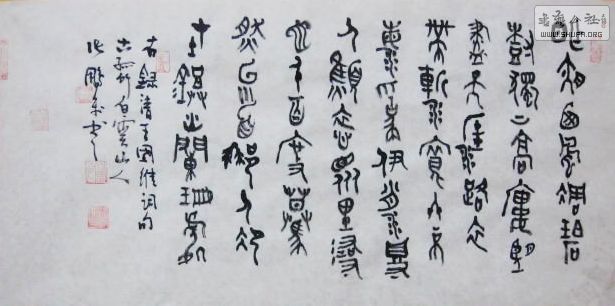 昨夜西風凋碧
樹獨上高樓望
盡天涯路衣
帶漸寬終不
悔為伊消得
人憔悴眾里尋
他千百度驀
然回首那人卻
在燈火闌珊處
右錄清王國維詞句
白雲山人
書
公社